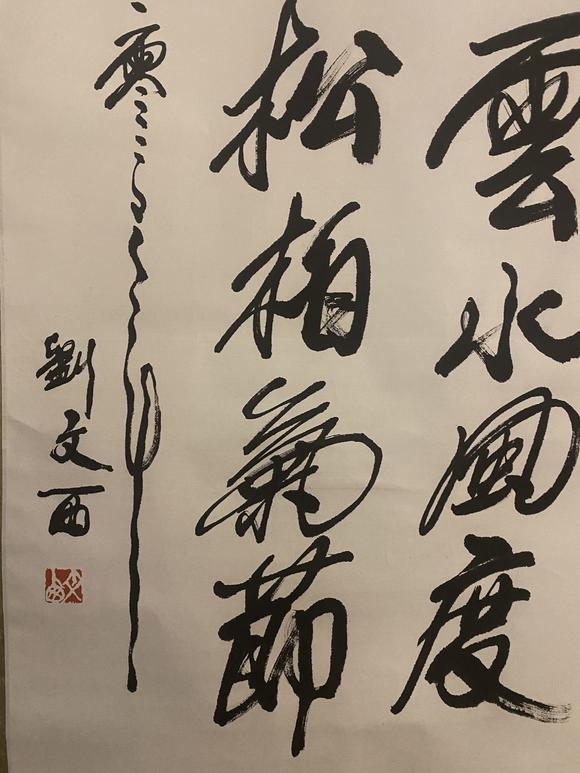 雲水風度
松柏氣節
劉文西
文西